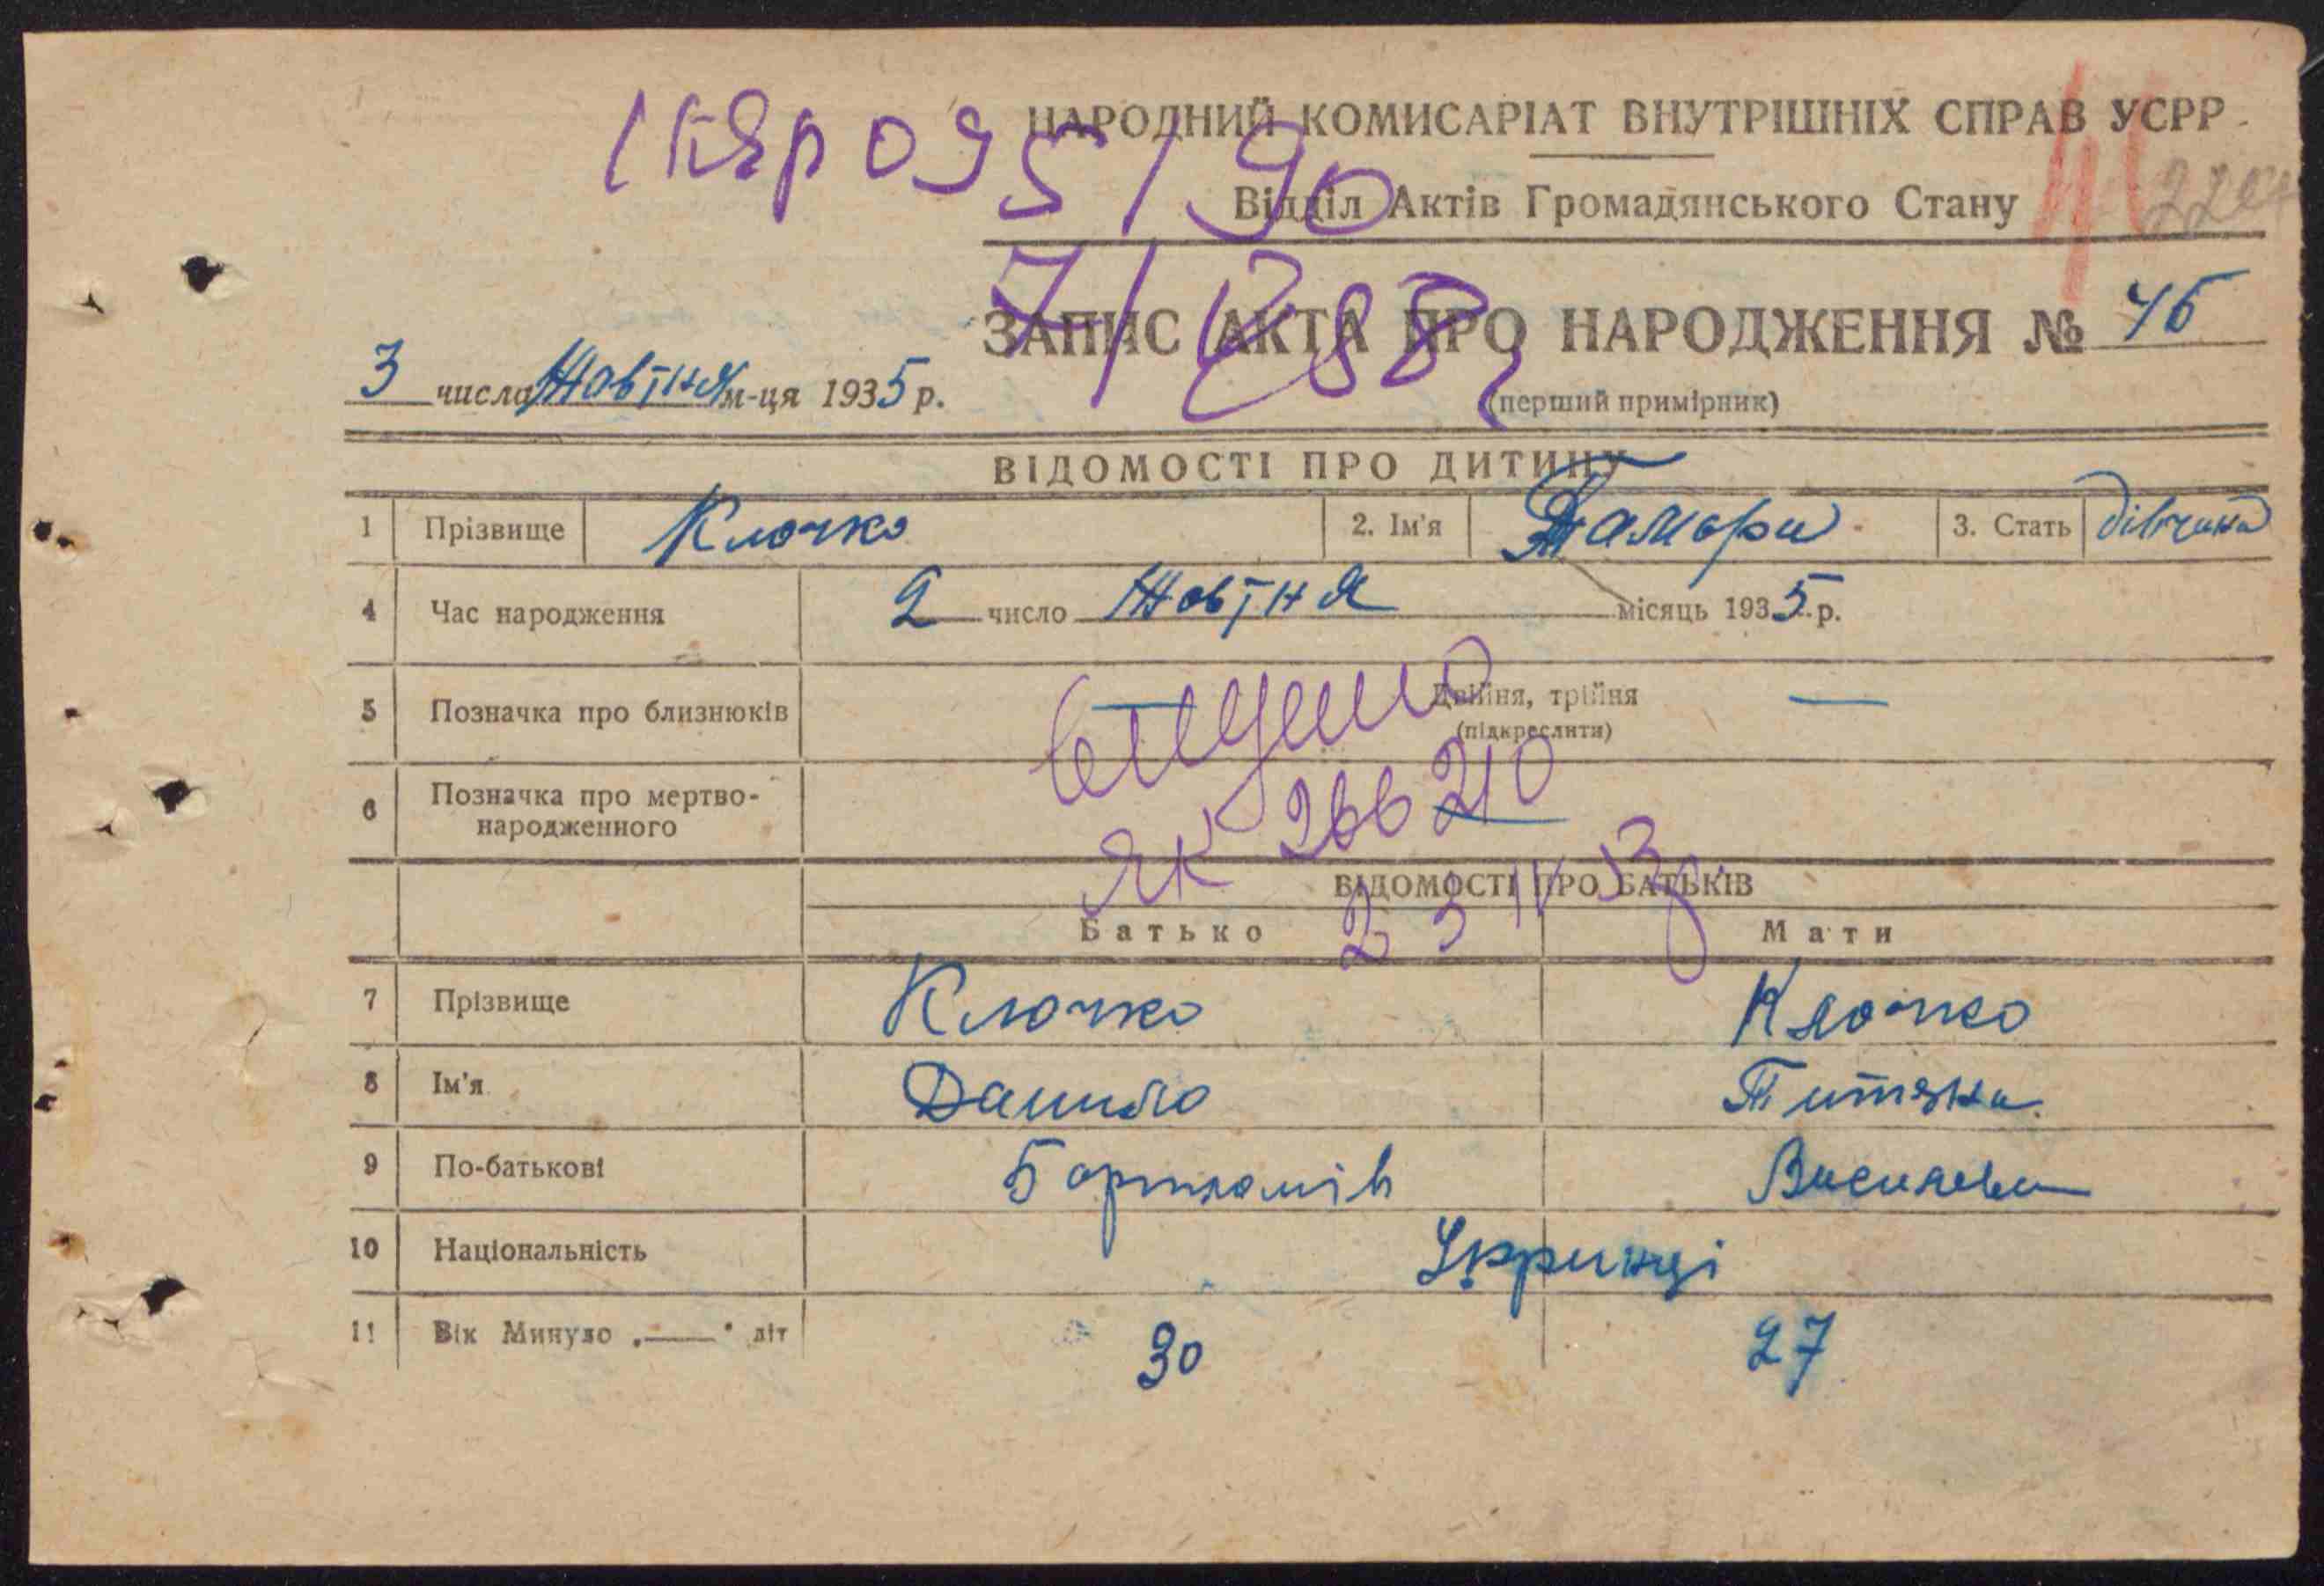 НАРОДНИЙ КОМИСАРІАТ ВНУТРІШНІХ СПРАВ УСРР
Відділ Актів Громадянського Стану
ЗАПИС АКТА ПРО НАРОДЖЕННЯ № 46
3 числа Жовтня м-ця 1935 р.
(перший примірник)
ВІДОМОСТІ ПРО ДИТИНУ
1 Прізвище Клочко 2. Ім'я Тамара 3. Стать дівчина
4 Час народження 2 число Жовтня місяць 1935 р.
5 Позначка про близнюків — Двійня, трійня —
(підкреслити)
6 Позначка про мертво-
народженного —
ВІДОМОСТІ ПРО БАТЬКІВ
Батько Мати
7 Прізвище Клочко Клочко
8 Ім'я Данило Титяна
9 По-батькові Василев
10 Національність Українці
11 Вік Минуло „—" літ 30 27